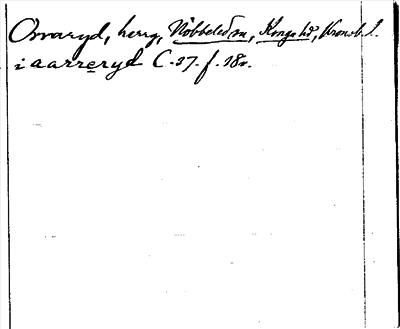 Orraryd, herrg, Nöbbeled sn, Konga hd, Kronob. l.
i aarreryd C. 27. f. 18v.